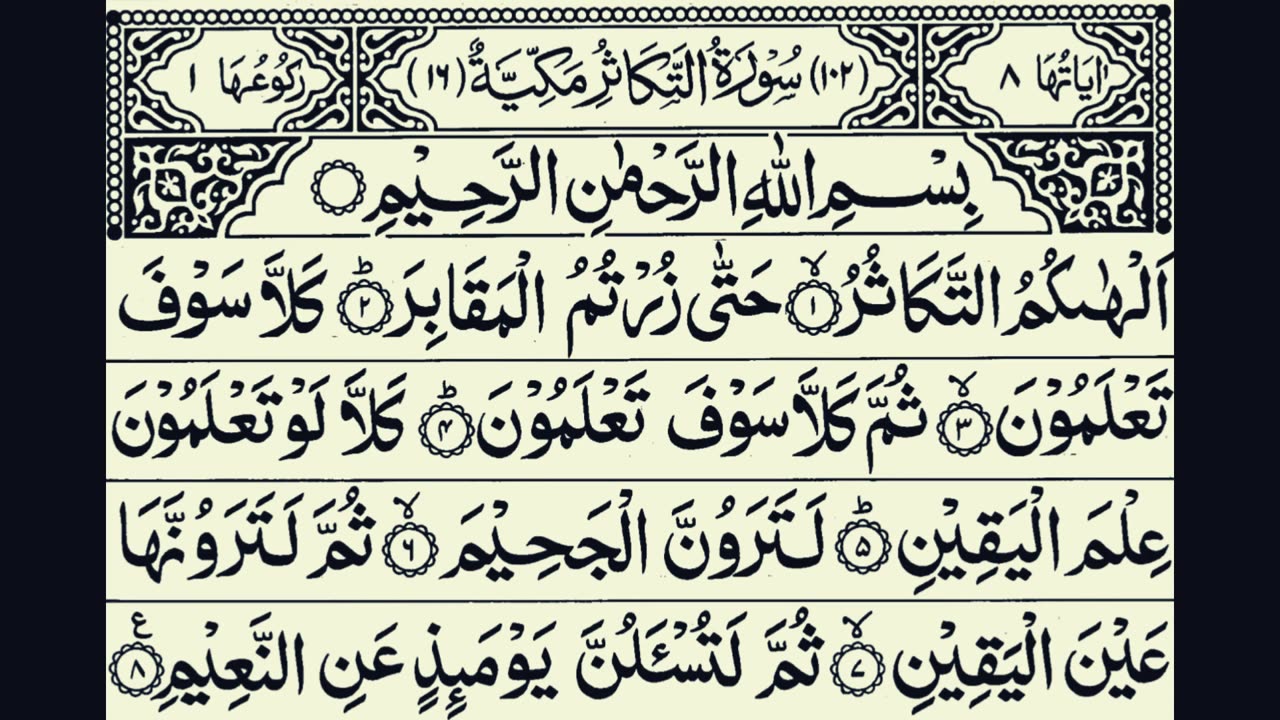 اٰيَاتُهَا ٨ (١٠٢) سُوْرَةُ التَّكَاثُرِ مَكِّيَّةٌ (١٦) رُكُوْعُهَا ١
بِسْمِ اللّٰهِ الرَّحْمٰنِ الرَّحِيْمِ
اَلْهٰىكُمُ التَّكَاثُرُ ۙ﴿١﴾ حَتّٰى زُرْتُمُ الْمَقَابِرَ ؕ﴿٢﴾ كَلَّا سَوْفَ
تَعْلَمُوْنَ ۙ﴿٣﴾ ثُمَّ كَلَّا سَوْفَ تَعْلَمُوْنَ ؕ﴿۴﴾ كَلَّا لَوْ تَعْلَمُوْنَ
عِلْمَ الْيَقِيْنِ ؕ﴿۵﴾ لَتَرَوُنَّ الْجَحِيْمَ ۙ﴿۶﴾ ثُمَّ لَتَرَوُنَّهَا
عَيْنَ الْيَقِيْنِ ۙ﴿٧﴾ ثُمَّ لَتُسْئَلُنَّ يَوْمَئِذٍ عَنِ النَّعِيْمِ ﴿٨﴾ ع